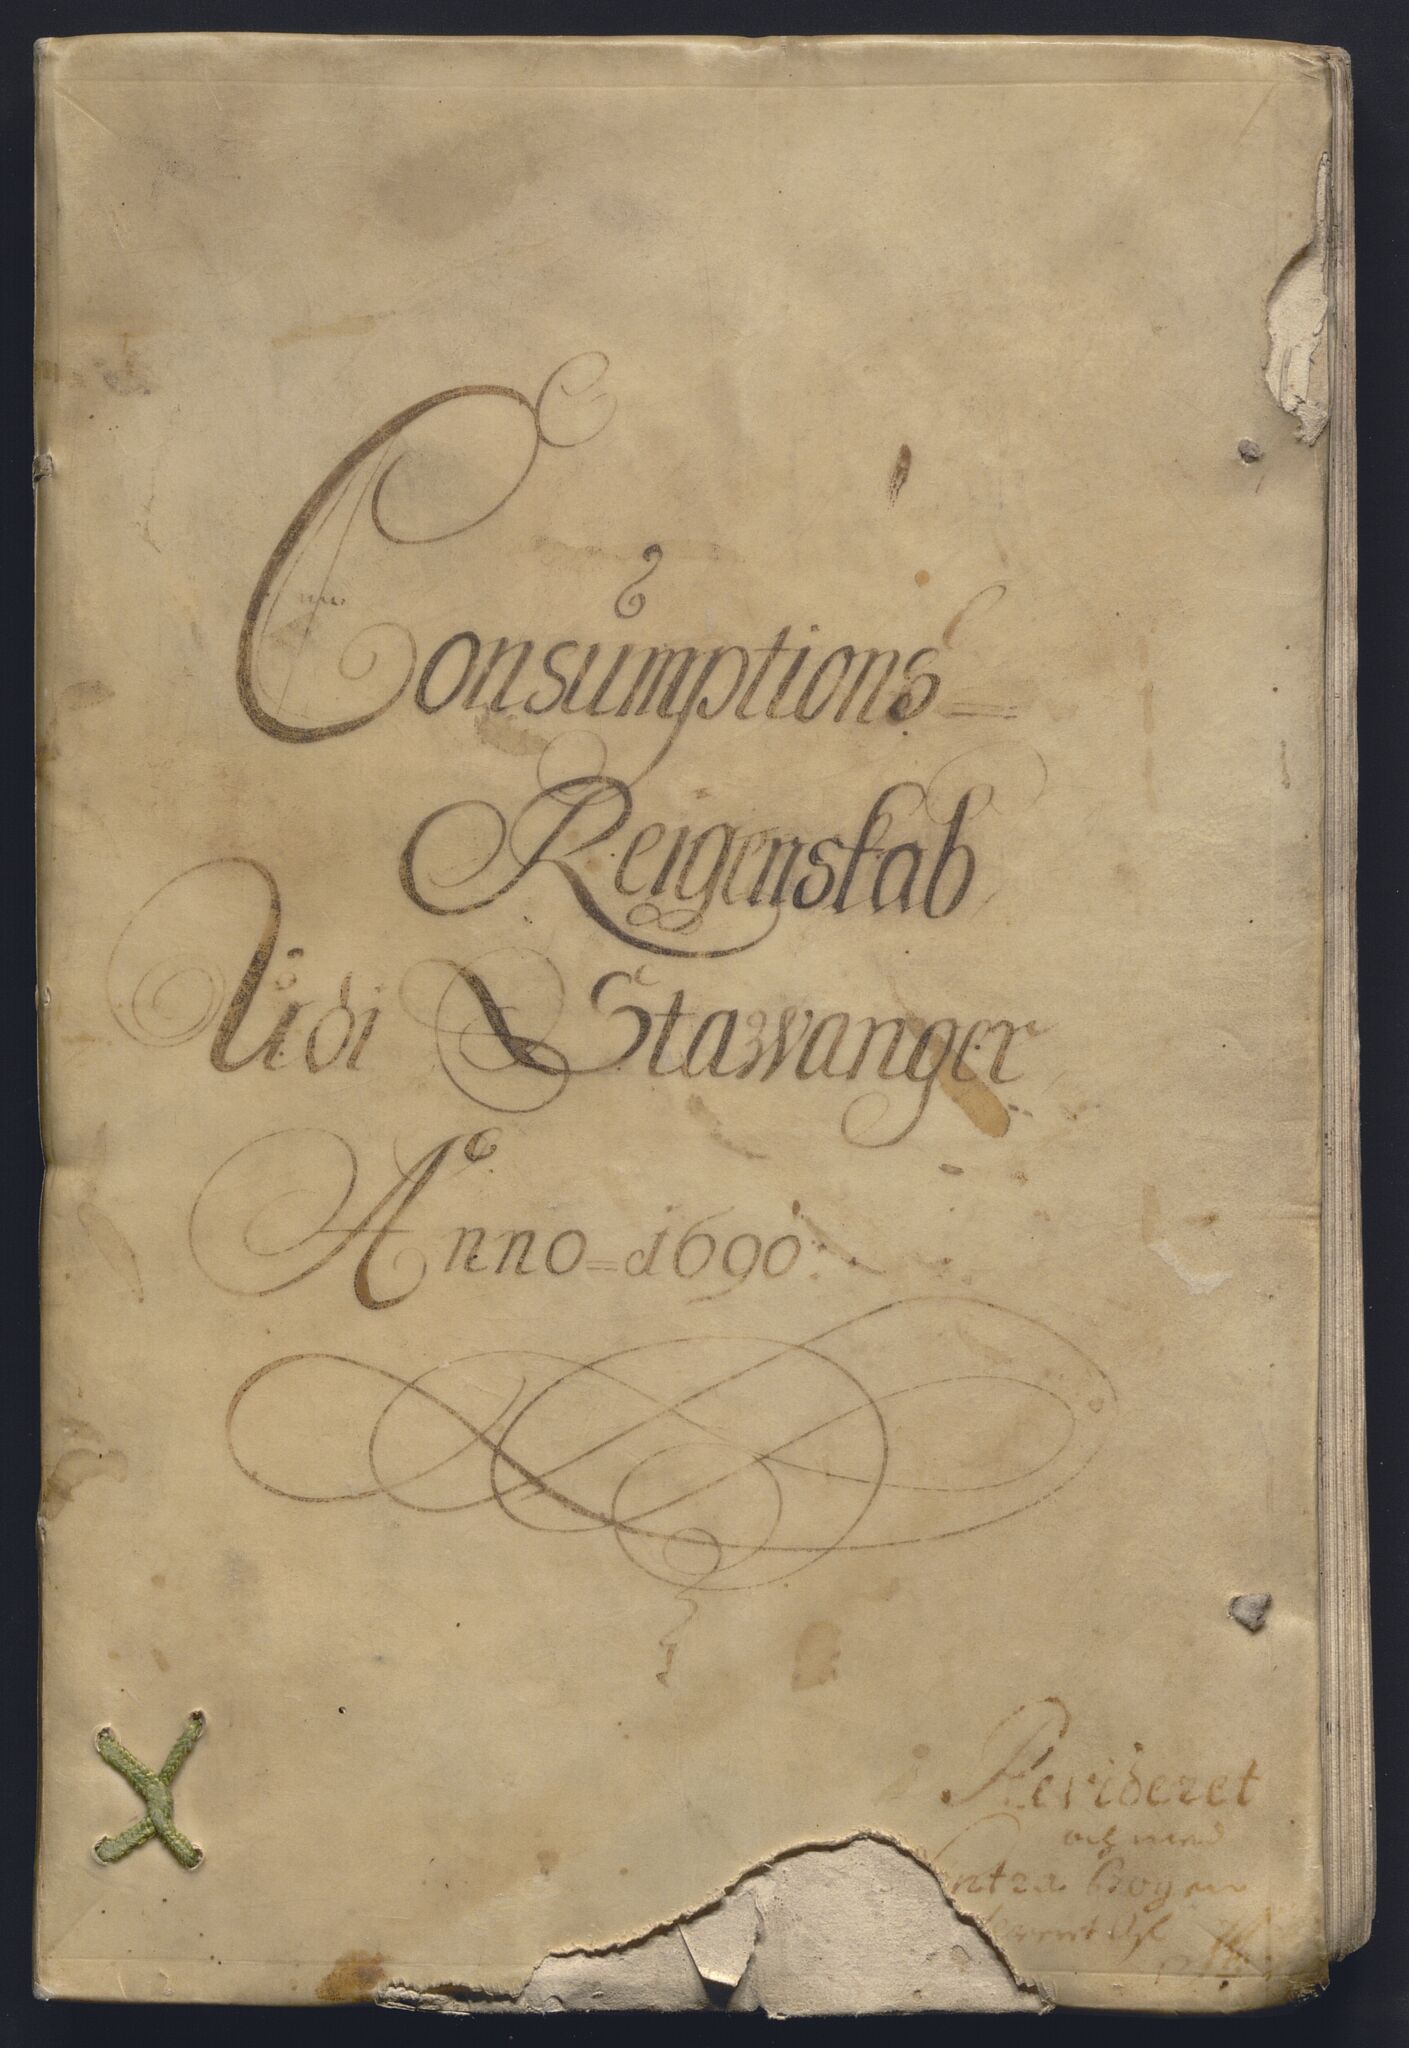 Consumptions=
Reigenskab
Udi Stawanger
Anno=1690
Revideret
och med
Contra Bogen